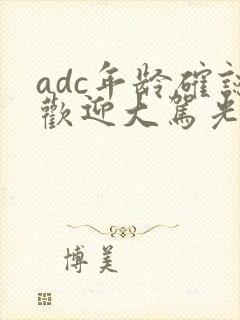 adc年龄確認
歡迎大駕光
博美